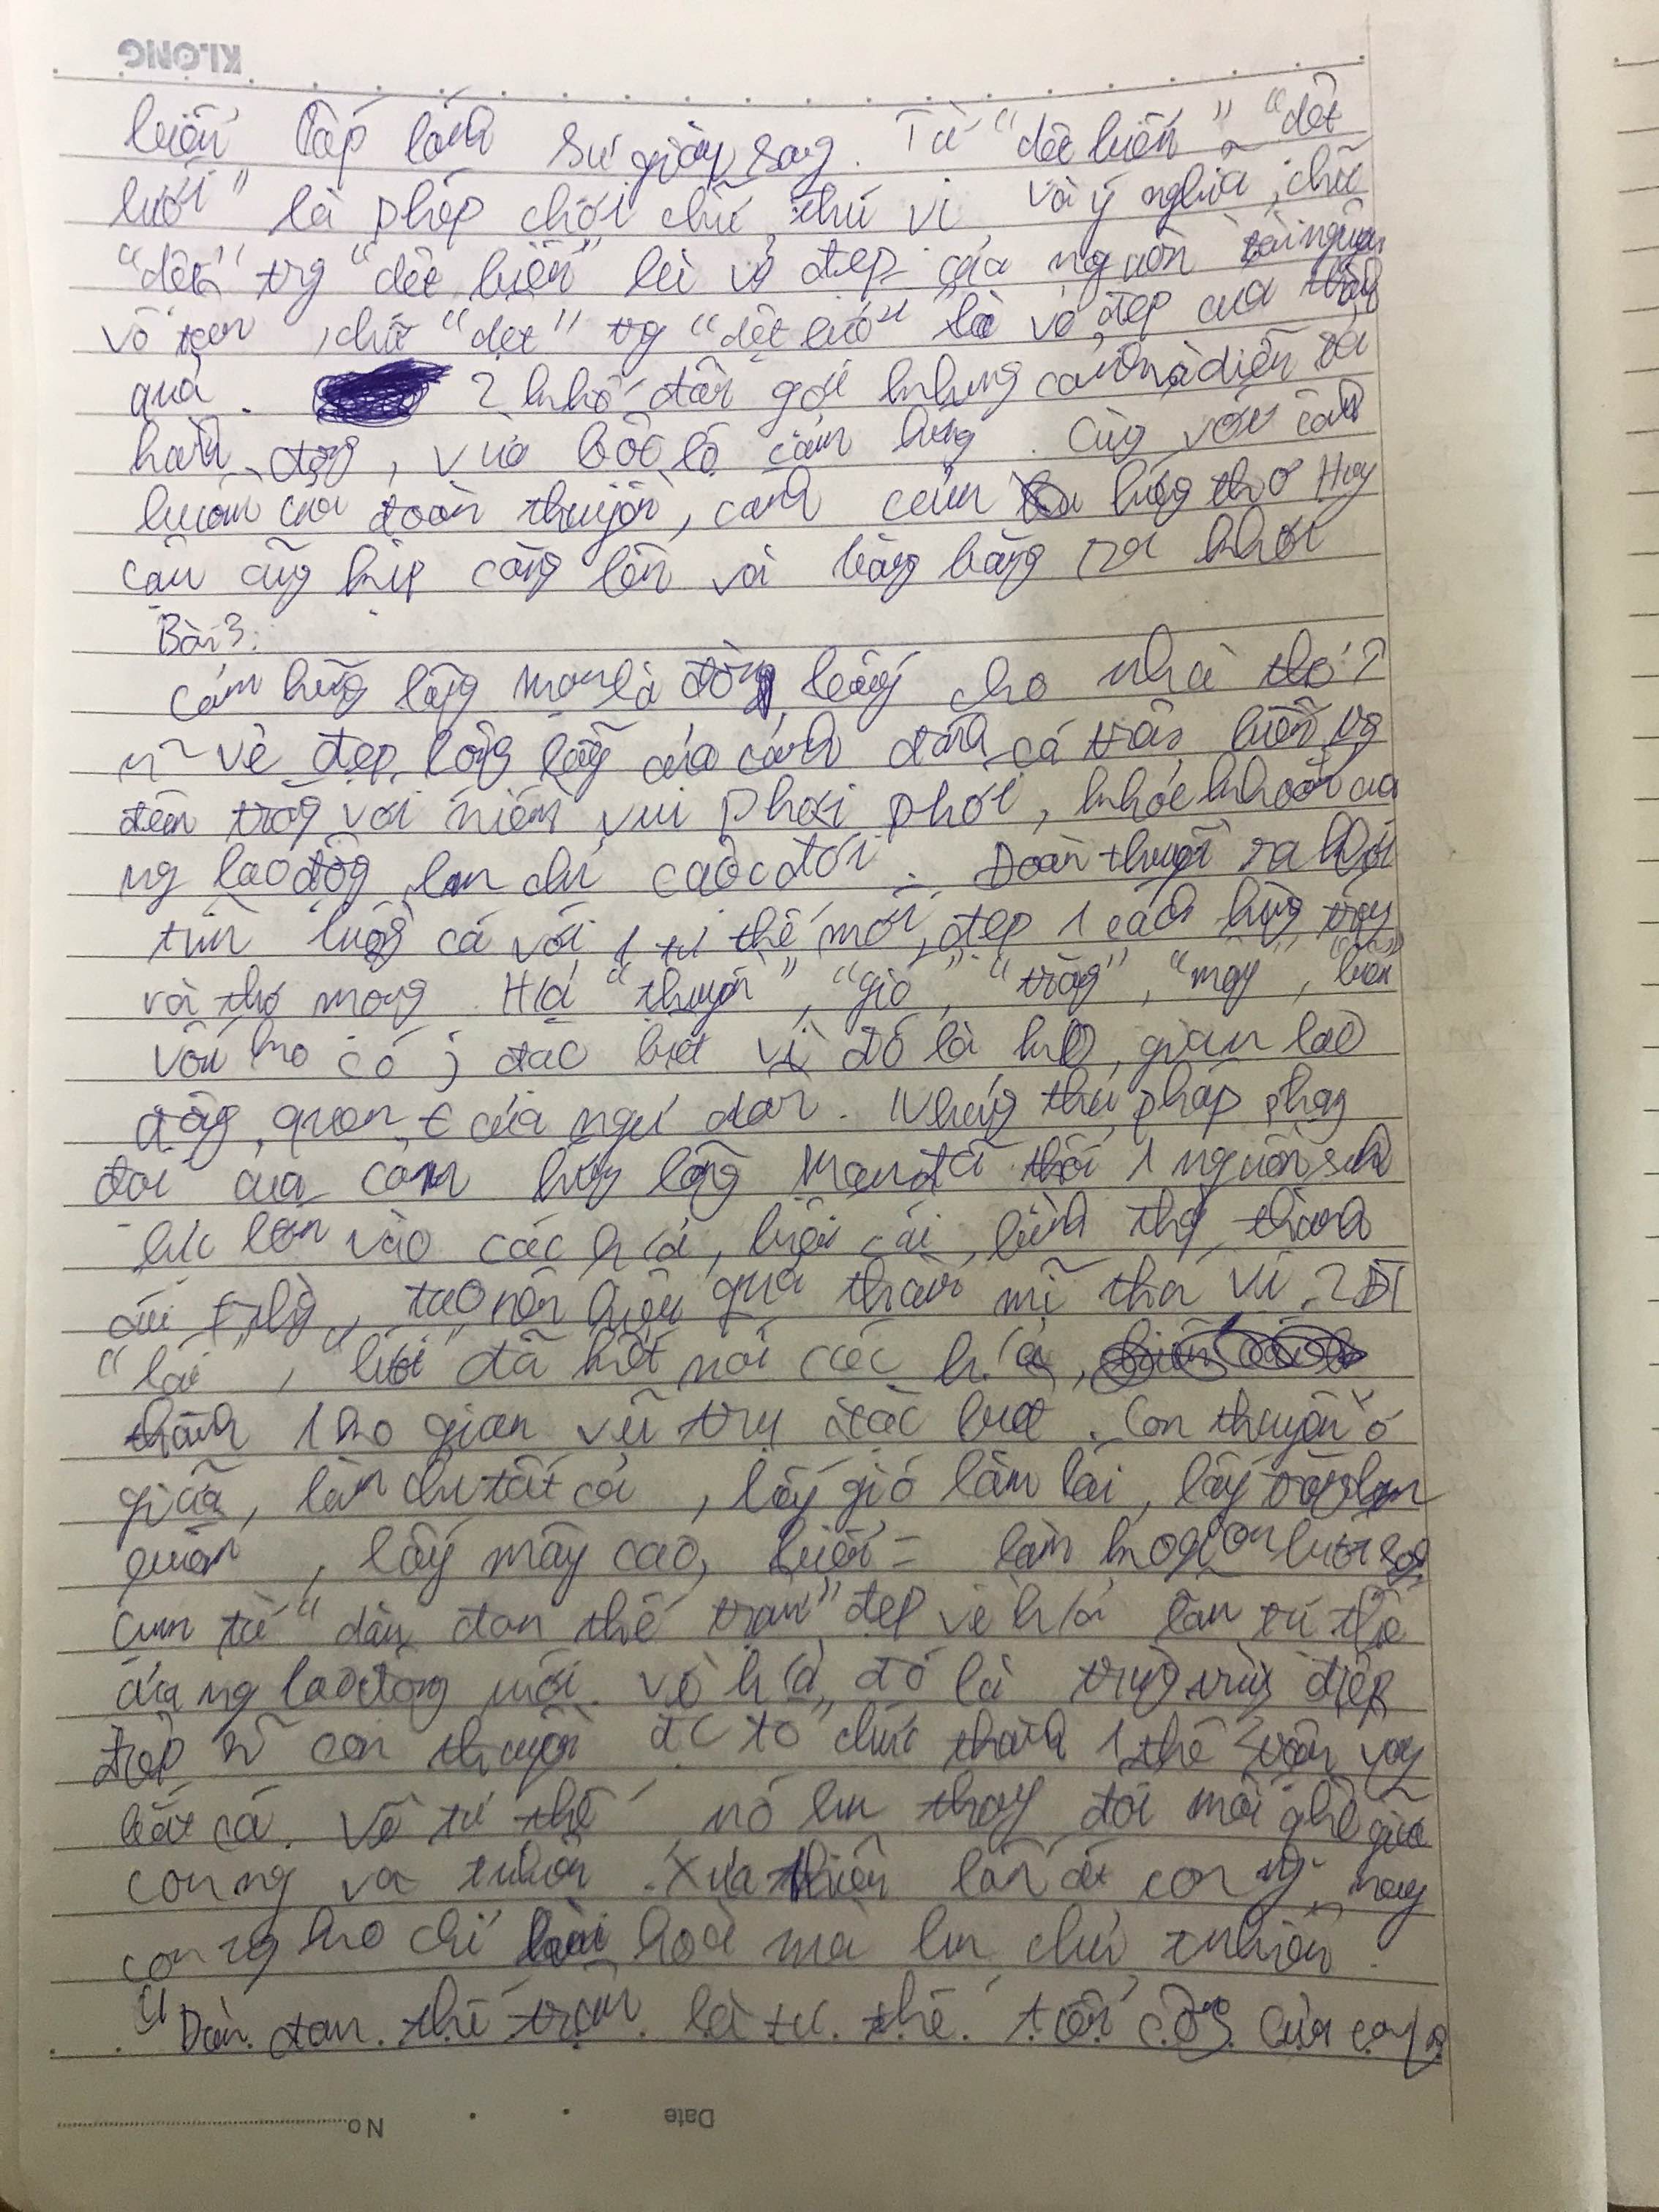 KLONG
biển lấp lánh sự giàu sang. Từ "dệt biển", "dệt
lưới" là phép chơi chữ thú vị. Về ý nghĩa, chữ
"dệt" trg "dệt biển" là vẻ đẹp của nguồn tài nguyên
vô tận, chữ "dệt" trg "dệt lưới" là vẻ đẹp của thành
quả. 2 khổ đầu gợi khung cảnh, diễn tả
hành động, vừa bộc lộ cảm hứng. Cùng với cánh
buồm của đoàn thuyền, cánh cảm hứng thơ Huy
Cận cũng kịp căng lên và băng băng ra khơi
Bài 3:
Cảm hứng lãng mạn là đòn bẩy cho nhà thơ?
vẻ đẹp lộng lẫy của cảnh đánh cá trên biển trg
đêm trăng với niềm vui phơi phới, khoẻ khoắn của
ng lao động làm chủ cuộc đời. Đoàn thuyền ra khơi
tìm luồng cá với 1 tư thế mới, đẹp 1 cách hùng tráng
và thơ mộng. H/a "thuyền", "gió", "trăng", "mây", "biển"
vốn ko có j đặc biệt vì đó là kg gian lao
động quen t của ngư dân. Nhưng thủ pháp phóng
đại của cảm hứng lãng mạn đã thổi 1 nguồn sinh
lực lớn vào các h/a, biến cái bình thg thành
cái f thg, tạo nên hiệu quả thẩm mĩ thú vị. 2 ĐT
"lái", "lướt" đã kết nối các h/a,
thành 1 ko gian vũ trụ đặc biệt. Con thuyền ở
giữa, làm chủ tất cả, lấy gió làm lái, lấy trăng làm
buồm, lấy mây cao, biển = làm ko gian lướt sóng
Cụm từ "dàn đan thế trận" đẹp về h/a lẫn tư thế
của ng lao động mới. Về h/a, đó là trùng trùng điệp
điệp n~ con thuyền đc tổ chức thành 1 thế trận vây
bắt cá. Về tư thế nó làm thay đổi mối qhệ giữa
con ng và tnhiên. Xưa thiên lấn át con ng, nay
con ng ko chỉ hài hoà mà làm chủ tnhiên.
"Dàn đan thế trận là tư thế tấn công của con ng
No
Date